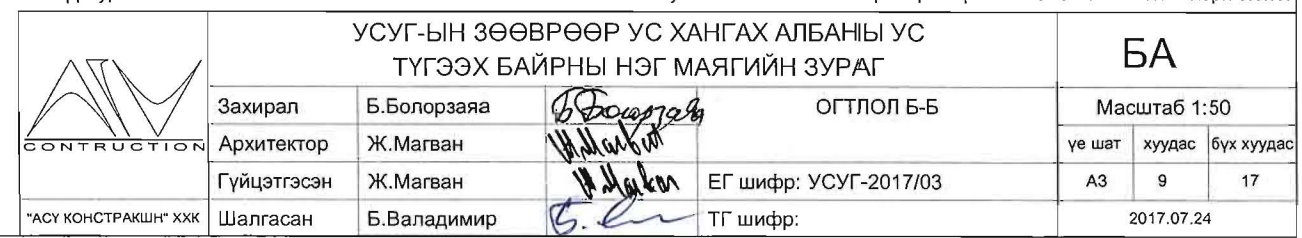 УСУГ-ЫН ЗӨӨВРӨӨР УС ХАНГАХ АЛБАНЫ УС
ТҮГЭЭХ БАЙРНЫ НЭГ МАЯГИЙН ЗУРАГ
БА
CONTRUCTION
Захирал Б.Болорзаяа ОГТЛОЛ Б-Б Масштаб 1:50
Архитектор Ж.Магван үе шат хуудас бүх хуудас
Гүйцэтгэсэн Ж.Магван ЕГ шифр: УСУГ-2017/03 А3 9 17
"АСҮ КОНСТРАКШН" ХХК Шалгасан Б.Валадимир ТГ шифр: 2017.07.24